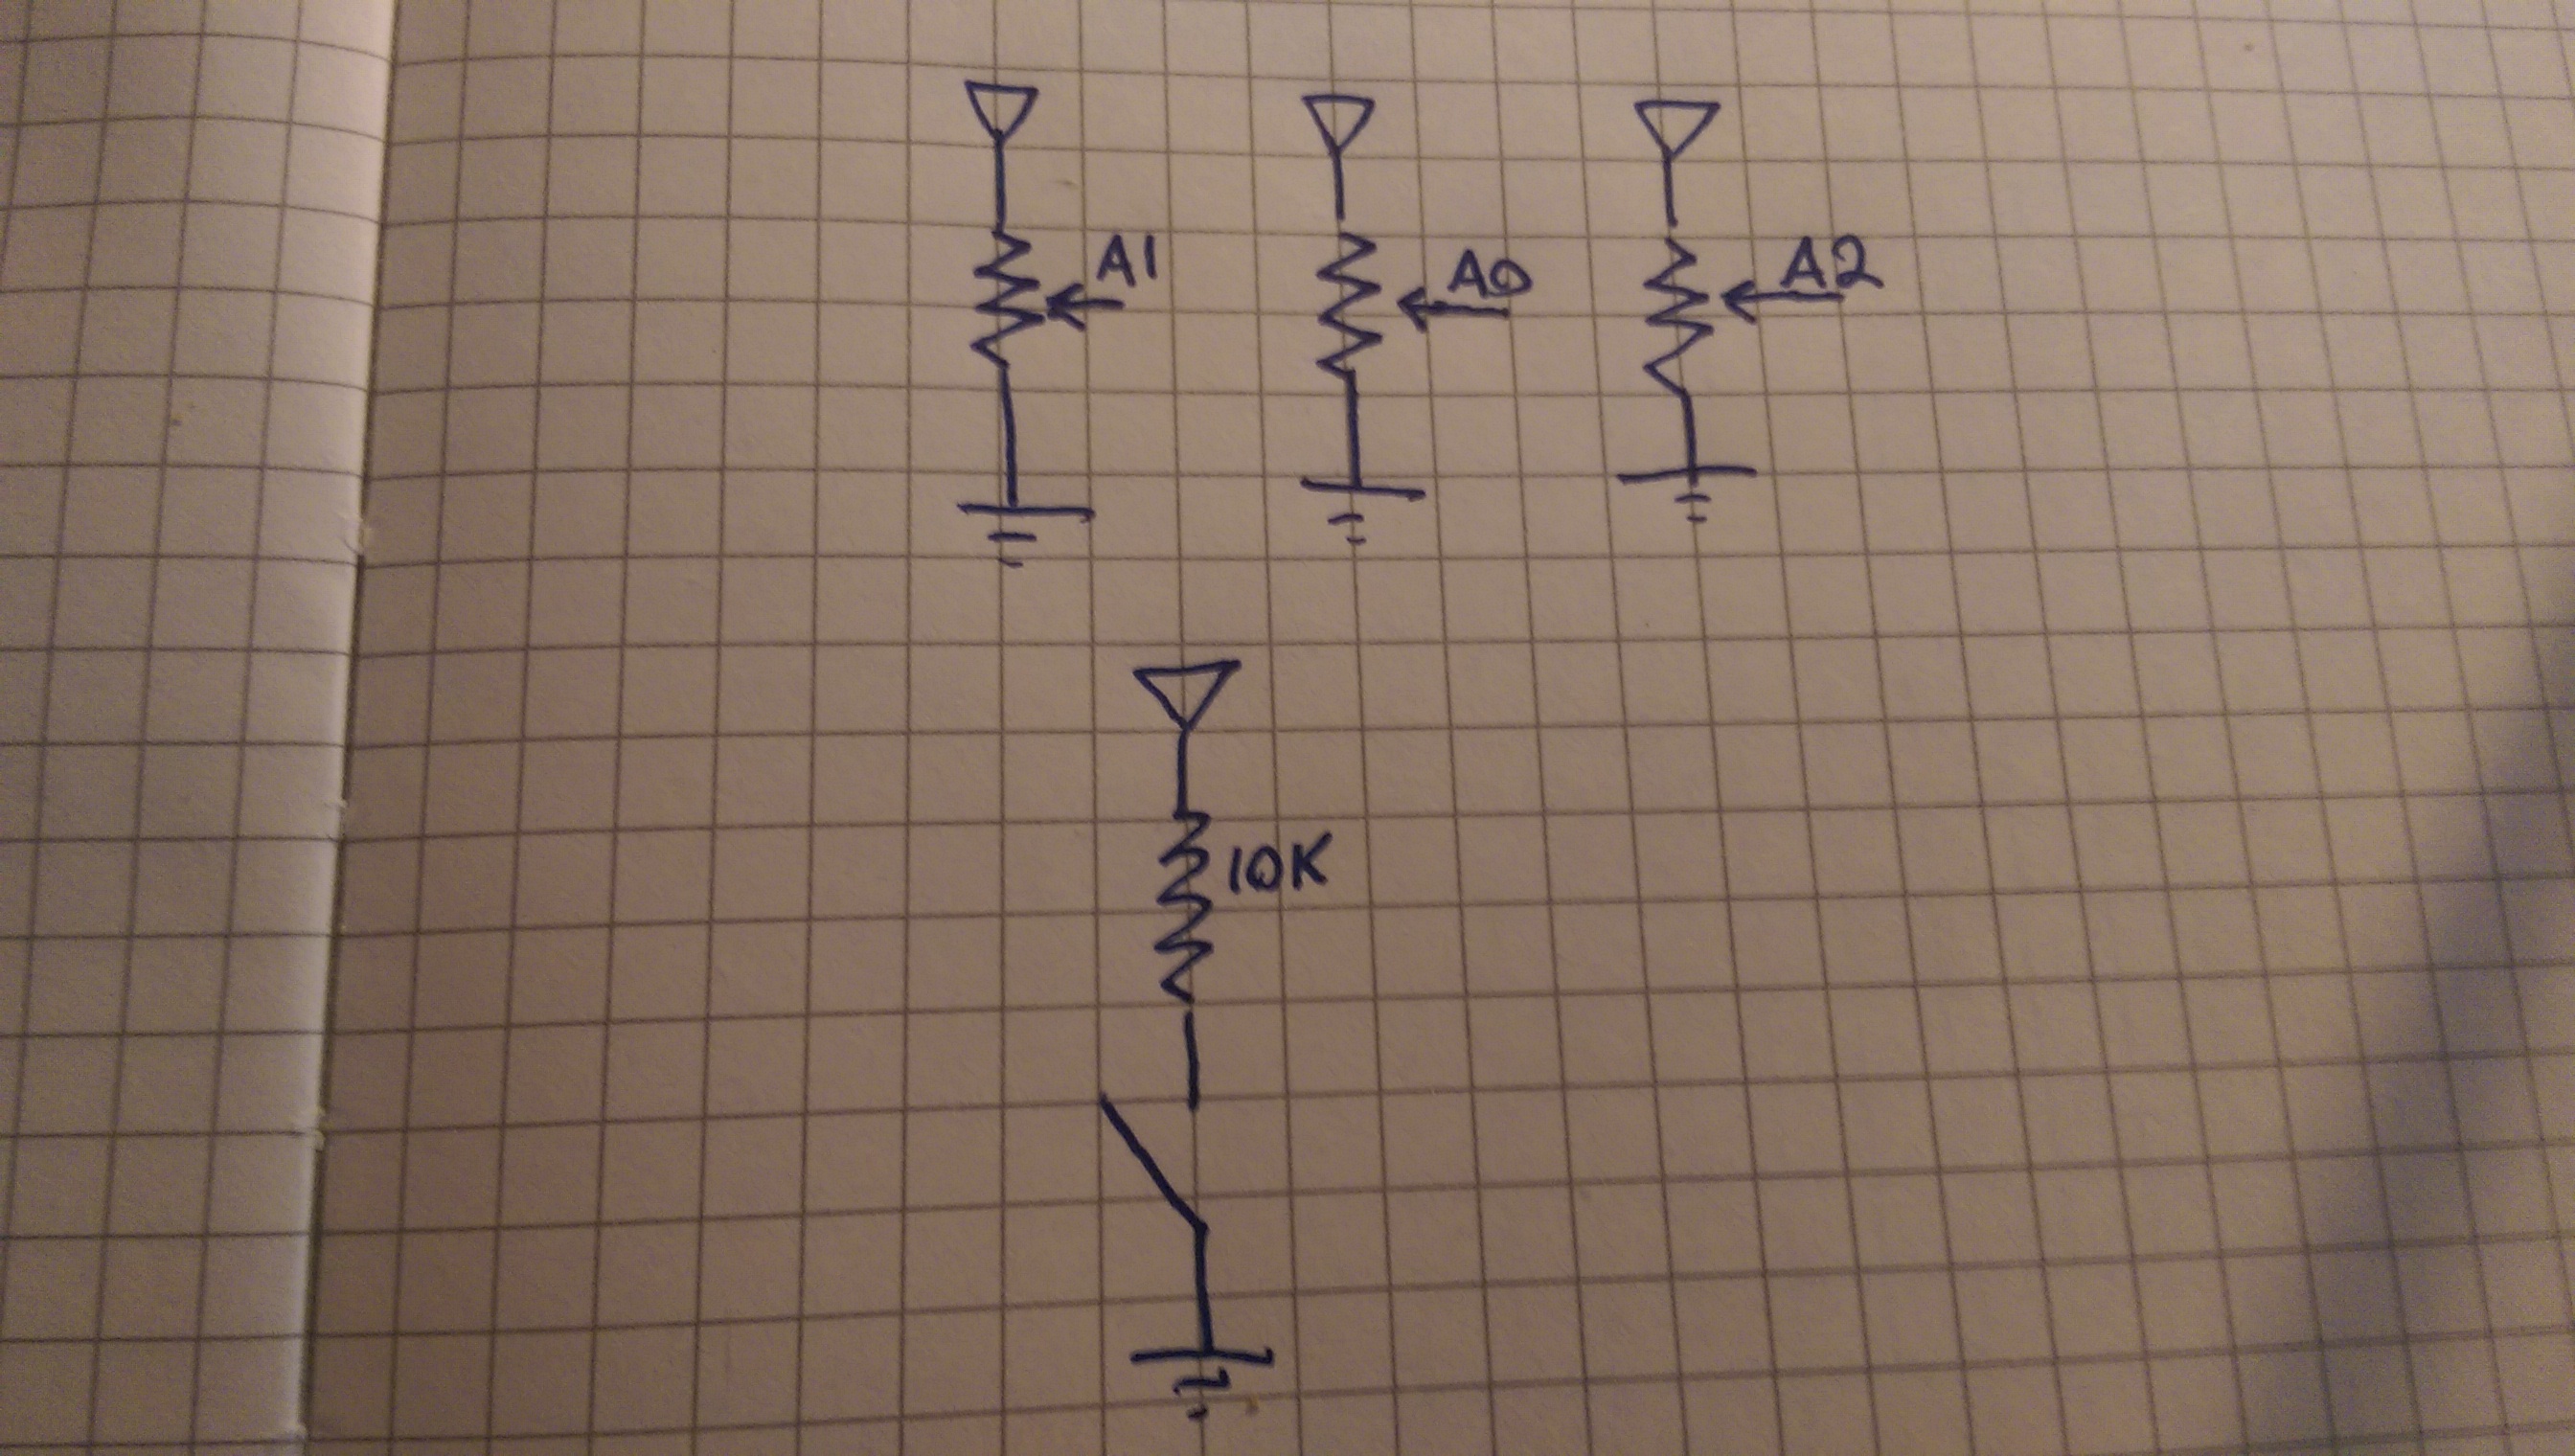 A1 A0 A2
10K